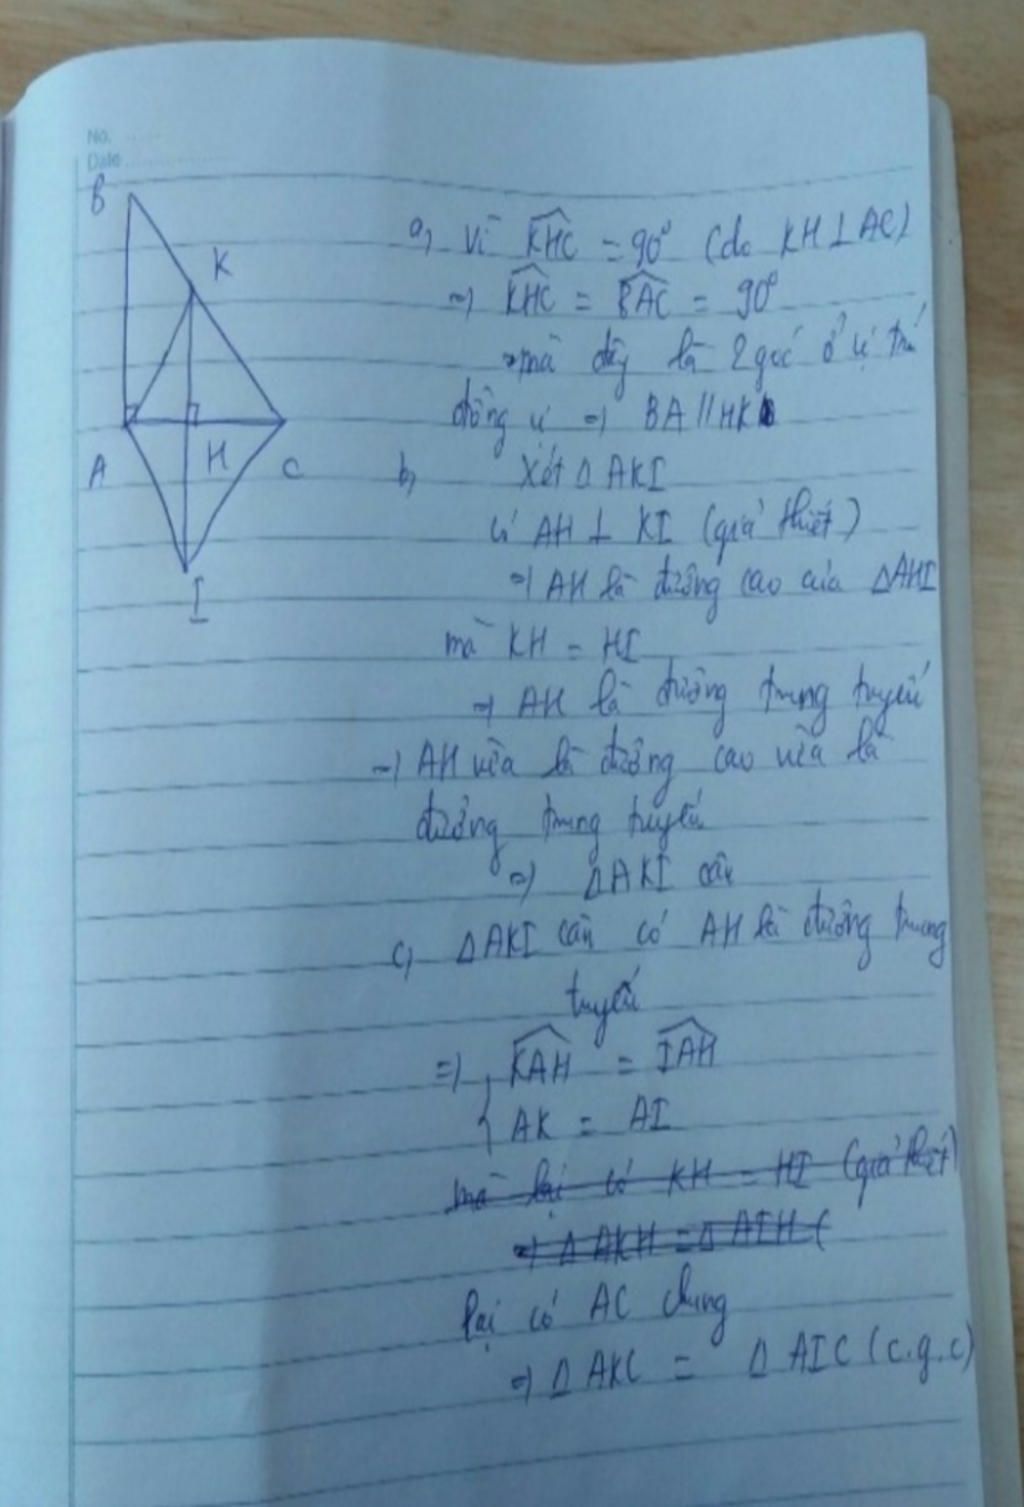 No. ......
Date ..................
B
K
A
H
C
I
a, Vì KHC = 90° (do KH ⊥ AC)
=> KHC = BAC = 90°
mà đây là 2 góc ở vị trí
đồng vị => BA // HK
b, Xét Δ AKI
có AH ⊥ KI (giả thiết)
=> AH là đường cao của ΔAHI
mà KH = HI
=> AH là đường trung tuyến
=> AH vừa là đường cao vừa là
đường trung tuyến
=> ΔAKI cân
c, ΔAKI cân có AH là đường trung
tuyến
=> { KAH = IAH
AK = AI
mà lại có KH = HI (giả thiết)
=> Δ AKH = Δ AIH (
lại có AC chung
=> Δ AKC = Δ AIC (c.g.c)